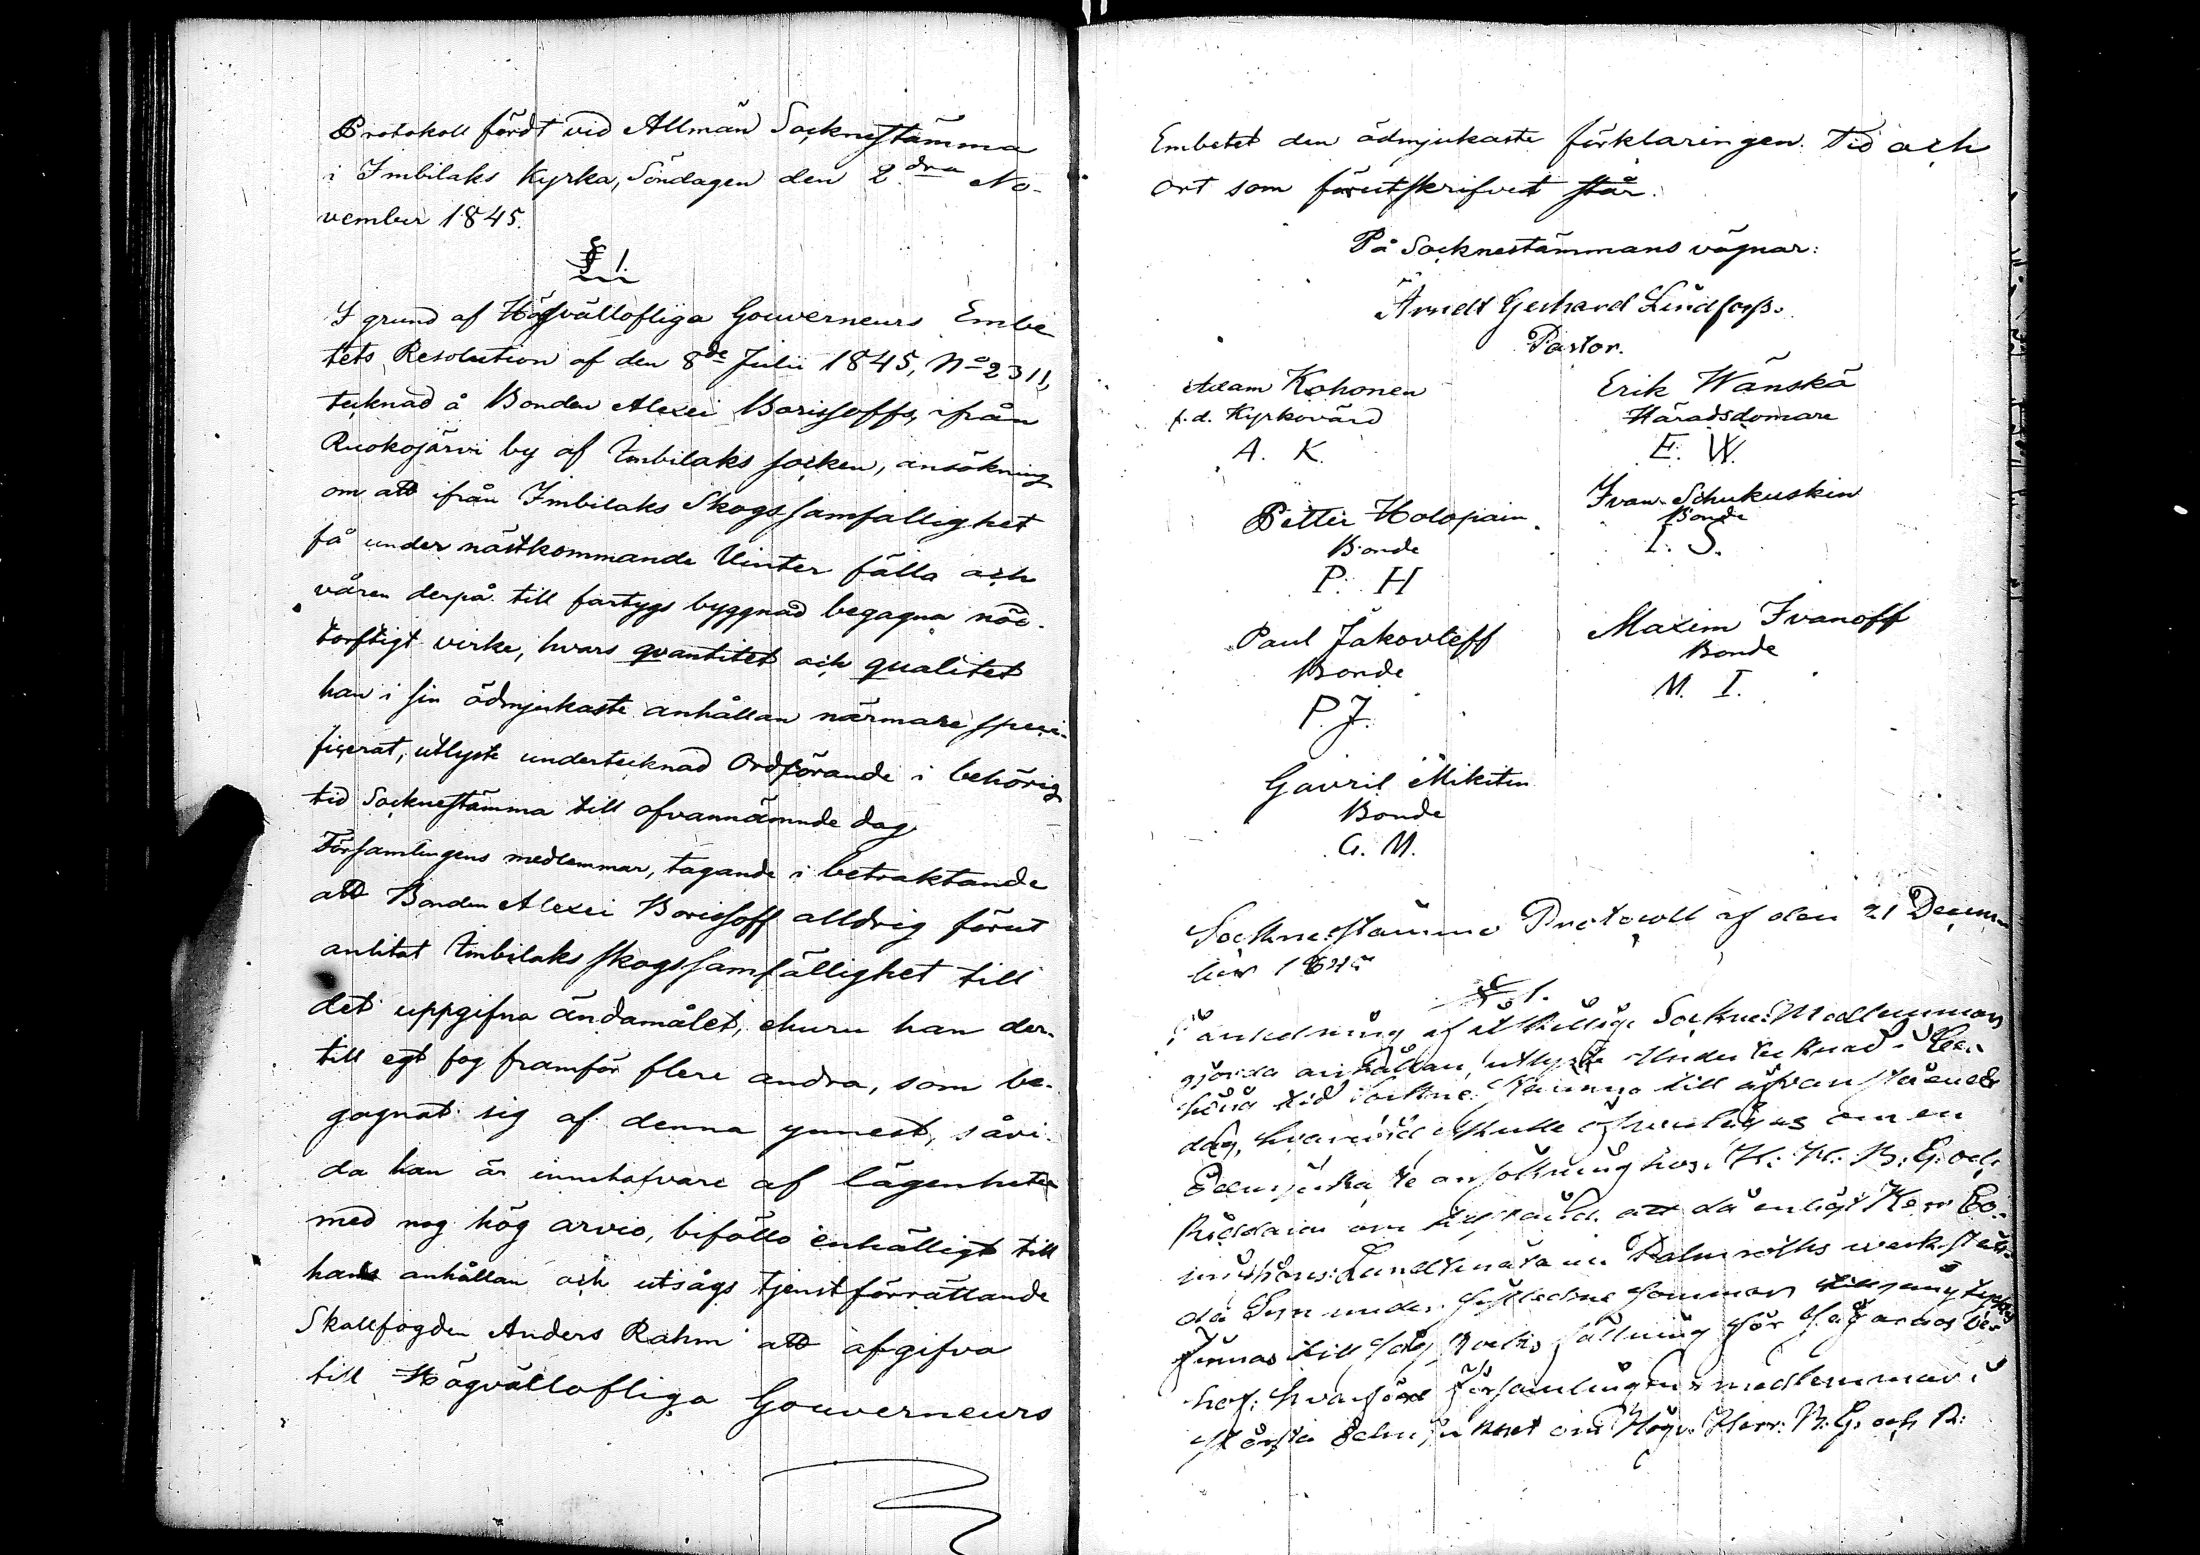 Protokoll fördt vid Allmän Socknestämma
i Imbilaks Kyrka, Söndagen den 2dra No-
vember 1845.
§ 1.
I grund af Högvällofliga Gouverneurs Embe
tets Resolution af den 8de Julii 1845, No 2311,
tecknad å Bonden Alexei Borissoffs, ifrån
Ruokojärvi by af Imbilaks socken, ansökning
om att ifrån Imbilaks Skogssamfällighet
få under nästkommande Vinter fälla och
våren derpå till fartygs byggnad begagna nöd-
torftigt virke, hvars qvantitet och qualitet
han i sin ödmjukaste anhållan närmare speci-
ficerat, utlyste undertecknad Ordförande i behörig
tid Socknestämma till ofvannämnde dag.
Församlingens medlemmar, tagande i betraktande
att Bonden Alexei Borissoff alldrig förut
anlitat Imbilaks skogssamfällighet till
det uppgifna ändamålet, ehuru han der-
till egt fog framför flere andra, som be-
gagnat sig af denna ynnest, såvi-
da han är innehafvare af lägenheter
med nog hög arvio, biföllo enhälligt till
hans anhållan och utsågs tjenstförrättande
Skallfogden Anders Rahm att afgifva
till Högvällofliga Gouverneurs
Embetet den ödmjukaste förklaringen. Tid och
ort som förutskrifvet står.
På Socknestämmans vägnar:
Arndt Gerhard Lindforss.
Pastor.
Adam Kohonen
f.d. Kyrkovärd
A. K.
Erik Wänskä
Häradsdomare
E. W.
Petter Holopain
Bonde
P. H
Ivan Schukuskin
Bonde
I. S.
Paul Jakovleff
Bonde
P. J.
Maxim Ivanoff
Bonde
M. I.
Gavril Mikitin
Bonde
G. M.
Sockne-stämmo Protocoll af den 21 Decem-
ber 1845
§ 1.
I anledning af åtskillige Sockne-Medlemmars
gjorda anhållan, utlyste Undertecknad i be-
hörig tid Sockne-Stämma till ofvanstående
dag, hvarwid skulle öfwerläggas om en
Ödmjuka te ansökning hos H: H: B: G: och
Riddaren om att då enligt Herr Co-
Landtmätaren Palmroths werkstäl-
da Syn under sistledne sommar
finnas till
hof: hvarföre Församlingens medlemmar i
största ödmjukhet om Högv. Herr: B: G: och R: